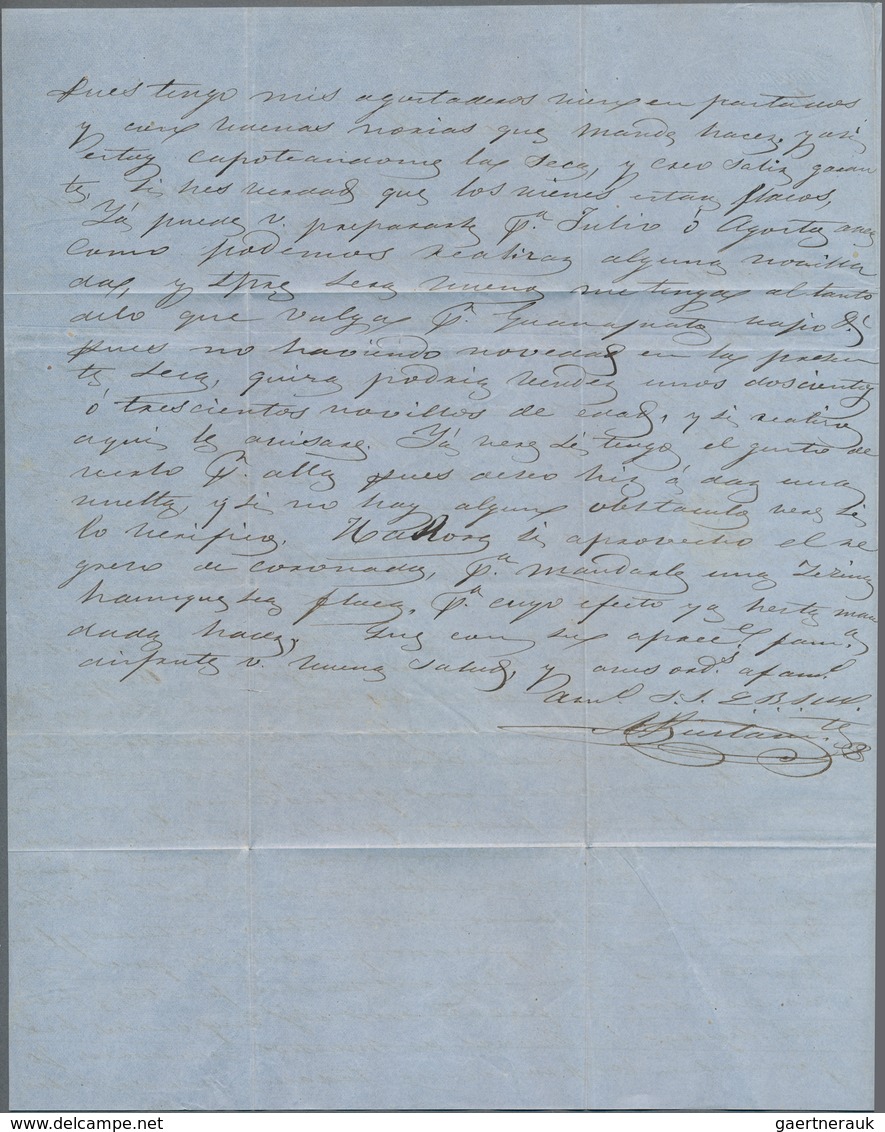 pues tengo mis agostaderos bien en pastados
y con buenas norias que mandé hacer, y asi
estoy capoteandome la seca, y creo salir garan
te, si hes verdad que los bienes estan flacos,
Yá puede v. prepararse pª. Julio ó Agosto aver
como podemos realizar alguna novilla
da, y spre. sera bueno me tenga al tanto
delo que valga pr. Guanajuato
pues no haviendo novedad en la presen
te seca, quiza podria vender unos doscientos
ó trescientos novillos de edad, y si realizo
aqui le avisare. Yá vere si tengo el gusto de
verlo pr. alla pues deseo hir á dar una
vuelta, y si no hay algun obstaculo vere si
lo verifico. Hahora si aprovecho el re
greso de coronado, pª. mandarle una
haunque sea flaca, pª. cuyo efecto ya hesta man
dada hacer, Sin con su apreel. fama.
disfrute v. buena salud, y ords. afmo.
amo. S. S. Q. B. S. M.
A Bustamte
gaertnerauk